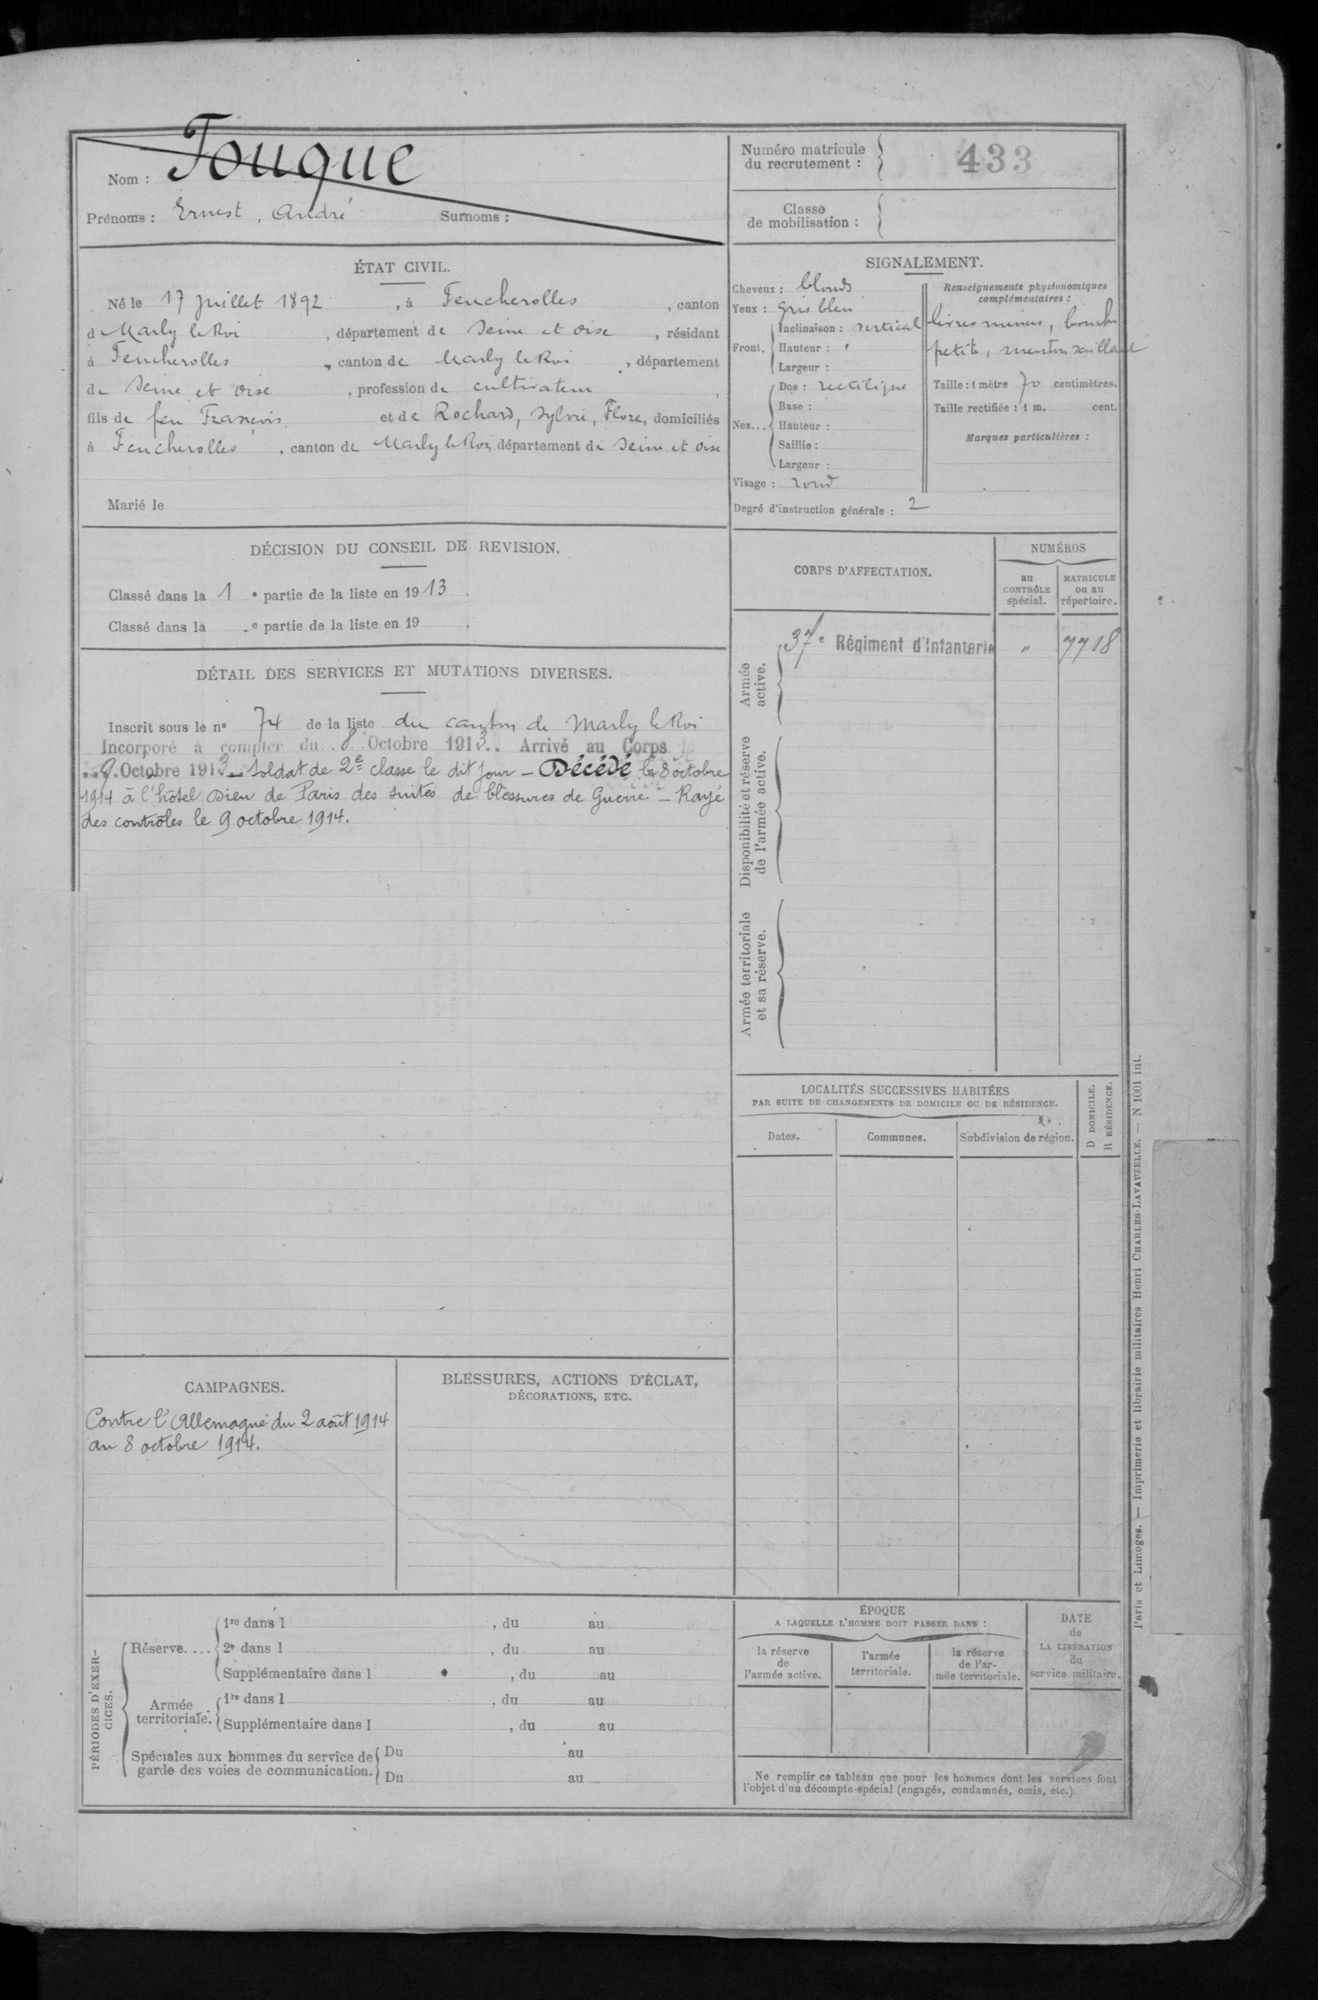 Nom : Fouque
Prénoms : Ernest, André Surnoms :
Numéro matricule
du recrutement : 433
Classe
de mobilisation :
ÉTAT CIVIL.
Né le 17 juillet 1892, à Feucherolles, canton
d Marly le Roi, département de Seine et Oise, résidant
à Feucherolles, canton de Marly le Roi, département
de Seine et Oise, profession de cultivateur,
fils de feu François et de Rochard, Sylvie, Flore, domiciliés
à Feucherolles, canton de Marly le Roi, département de Seine et Oise
Marié le
SIGNALEMENT.
Cheveux : blonds
Yeux : gris bleu
Front. Inclinaison : vertical
Hauteur :
Largeur :
Nez... Dos : rectiligne
Base :
Hauteur :
Saillie :
Largeur :
Visage : rond
Renseignements physionomiques
complémentaires :
lèvres minces, bouche
petite, menton saillant
Taille : 1 mètre 70 centimètres.
Taille rectifiée : 1 m. cent.
Marques particulières :
Degré d'instruction générale : 2
DÉCISION DU CONSEIL DE REVISION.
Classé dans la 1e partie de la liste en 1913.
Classé dans la e partie de la liste en 19 .
DÉTAIL DES SERVICES ET MUTATIONS DIVERSES.
Inscrit sous le no 74 de la liste du canton de Marly le Roi
Incorporé à compter du 8 Octobre 1913. Arrivé au Corps
9 Octobre 1913 Soldat de 2e classe le dit jour – Décédé le 8 octobre
1914 à l'hotel Dieu de Paris des suites de blessures de Guerre – Rayé
des contrôles le 9 octobre 1914.
CORPS D'AFFECTATION.
NUMÉROS
au
CONTRÔLE
spécial.
MATRICULE
ou au
répertoire.
Armée
active.
37e Régiment d'Infanterie " 7718
Disponibilité et réserve
de l'armée active.
Armée territoriale
et sa réserve.
LOCALITÉS SUCCESSIVES HABITÉES
PAR SUITE DE CHANGEMENTS DE DOMICILE OU DE RÉSIDENCE.
Dates.
Communes.
Subdivision de région.
D DOMICILE.
R RÉSIDENCE.
CAMPAGNES.
Contre l'Allemagne du 2 août 1914
au 8 octobre 1914.
BLESSURES, ACTIONS D'ÉCLAT,
DÉCORATIONS, ETC.
PÉRIODES D'EXER-
CICES.
Réserve.... 1re dans l , du au
2e dans l , du au
Supplémentaire dans l , du au
Armée
territoriale. 1re dans l , du au
Supplémentaire dans l , du au
Spéciales aux hommes du service de
garde des voies de communication. Du au
Du au
ÉPOQUE
A LAQUELLE L'HOMME DOIT PASSER DANS :
la réserve
de
l'armée active.
l'armée
territoriale.
la réserve
de l'ar-
mée territoriale.
DATE
de
LA LIBÉRATION
du
service militaire.
Ne remplir ce tableau que pour les hommes dont les services font
l'objet d'un décompte spécial (engagés, condamnés, omis, etc.).
Paris et Limoges. — Imprimerie et librairie militaires Henri CHARLES-LAVAUZELLE. — N 1001 int.